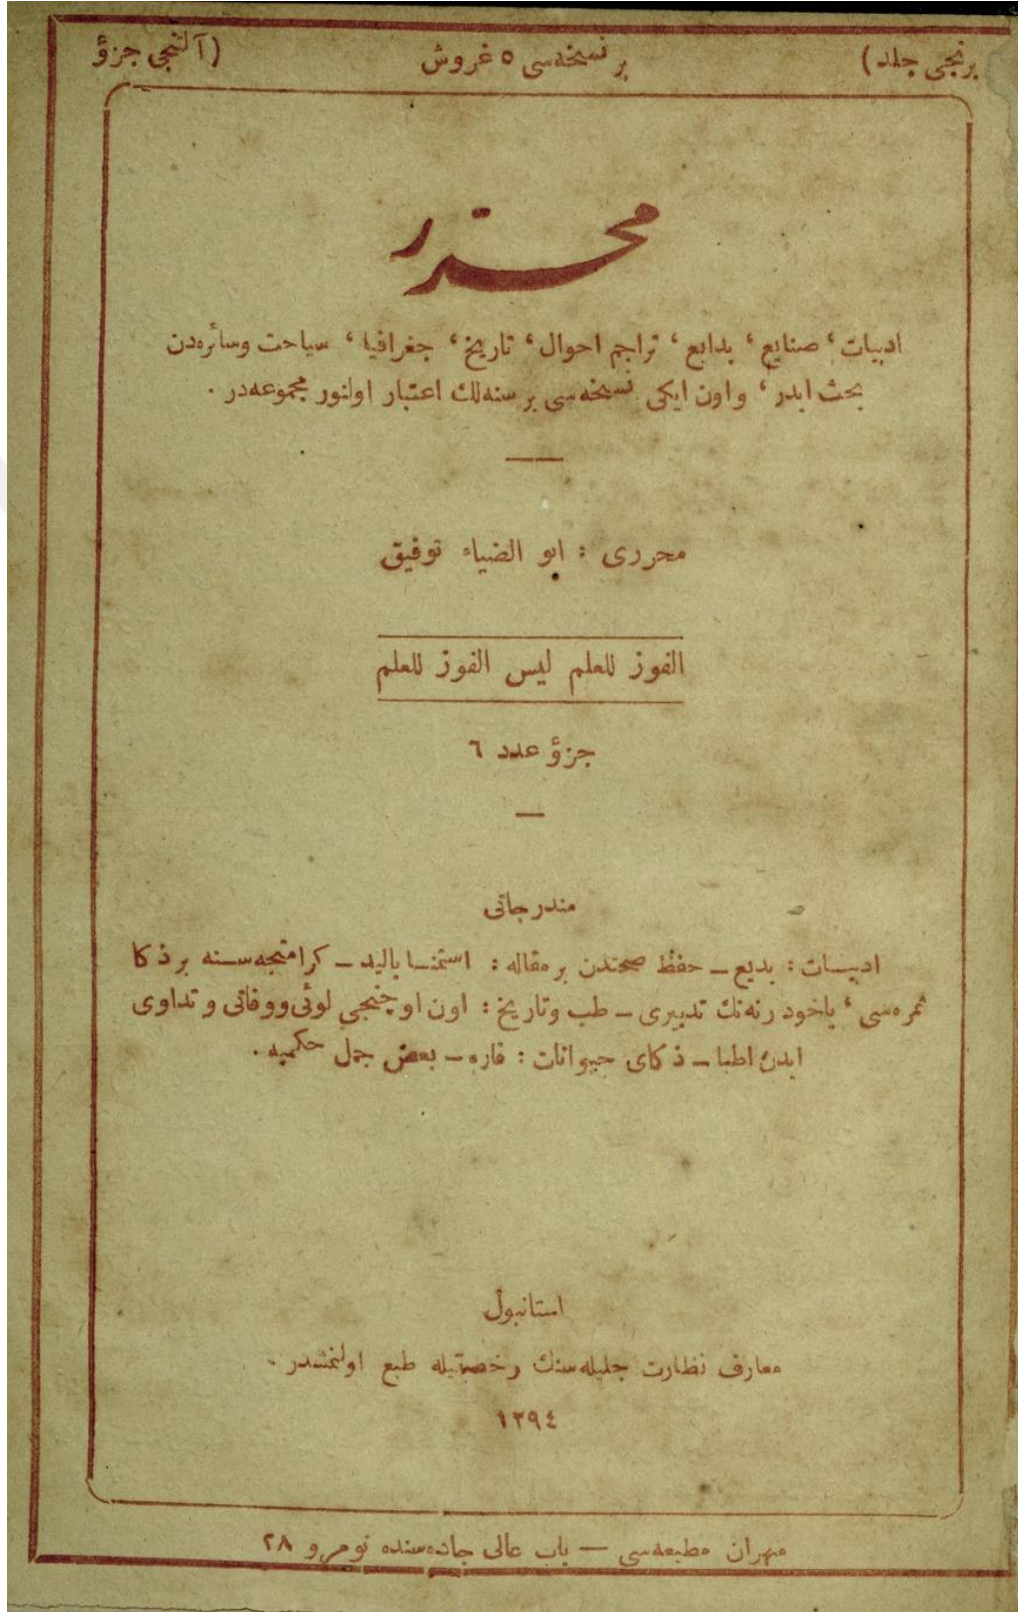 برنجی جلد)
بر نسخه‌سی ٥ غروش
(آلتنجی جزؤ
محرّر
ادبیات، صنایع، بدایع، تراجم احوال، تاریخ، جغرافیا، سیاحت وسائره‌دن
بحث ایدر، واون ایکی نسخه‌سی بر سنه‌لك اعتبار اولنور مجموعه‌در .
محرری : ابو الضیاء توفیق
الفوز للعلم لیس الفوز للعلم
جزؤ عدد ٦
مندرجاتی
ادبیات : بدیع ـ حفظ صحتدن بر مقاله : استمنا بالید ـ کرامتجه‌سنه بر ذکا
ثمره‌سی، یاخود رنه‌نك تدبیری ـ طب وتاریخ : اون اوچنجی لوئی‌ووفاتی و تداوی
ایدن اطبا ـ ذکای حیوانات : فاره ـ بعض جمل حکمیه .
استانبول
معارف نظارت جلیله‌سنك رخصتیله طبع اولنمشدر .
١٢٩٤
مهران مطبعه‌سی — باب عالی جاده‌سنده نومرو ٢٨